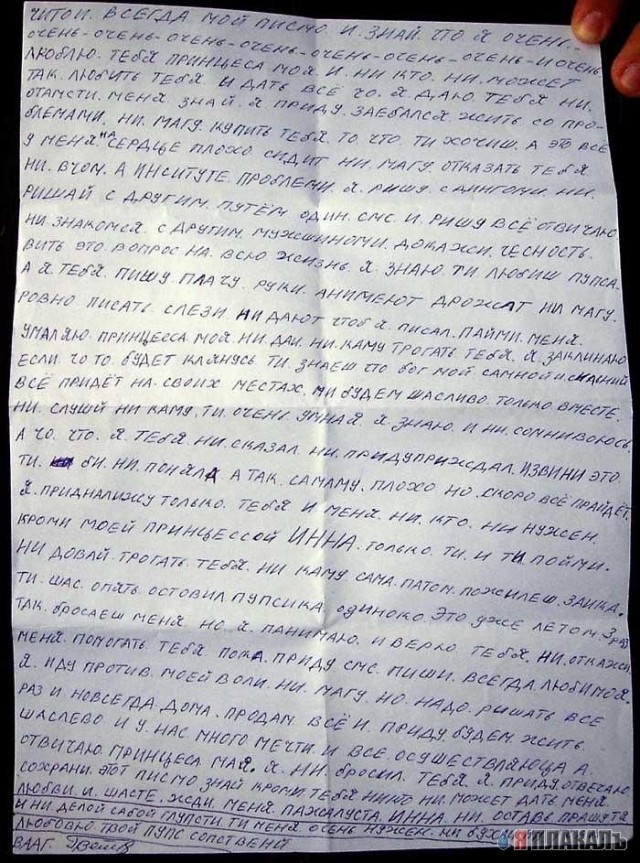 ЧИТОЙ. ВСЕГДА МОЙ ПИСМО. И. ЗНАЙ. ЧТО Я ОЧЕНГ-
ОЧЕНЬ-ОЧЕНЬ-ОЧЕНЬ-ОЧЕНЬ-ОЧЕНЬ-ОЧЕНЬ-ОЧЕНЬ-ИОЧЕНЬ
ЛЮБЛЮ. ТЕБЯ ПРИНЦЕСА МОЯ И. НИ КТО. НИ. МОЖЕТ
ТАК. ЛЮБИТЬ ТЕБЯ И ДАТЬ ВСЁ ЧО. Я. ДАЮ. ТЕБЯ НИ.
ОТАМСТИ. МЕНЯ. ЗНАЙ. Я ПРИДУ. ЗАЕБАЛСЯ ЖИТЬ СО ПРО-
БЛЕМАМИ. НИ. МАГУ. КУПИТЬ ТЕБЯ. ТО ЧТО. ТИ ХОЧИШ. А ЭТО ВСЁ
У МЕНЯ НА СЕРДЦЕ ПЛОХО СИДИТ НИ. МАГУ. ОТКАЗАТЬ ТЕБЯ
НИ. ВЧОМ. А ИНСИТУТЕ. ПРОБЛЕМИ. Я. РИШУ. С ДИНГОМИ. НИ.
РИШАЙ С ДРУГИМ. ПУТЁМ ОДИН. СМС. И. РИШУ ВСЁ ОТВИЧАЮ.
НИ. ЗНАКОМСЯ. С ДРУГИМ. МУЖШИНОМИ. ДОКАЖИ. ЧЕСНОСТЬ.
ВИТЬ ЭТО ВОПРОС НА. ВСЮ ЖИЗНЬ. Я. ЗНАЮ. ТИ ЛЮБИШ ПУПСА.
А Я ТЕБЯ. ПИШУ. ПЛАЧУ. РУКИ. АНИМЕЮТ ДРОЖАТ НИ МАГУ.
РОВНО ПИСАТЬ СЛЕЗИ. НИ ДАЮТ ЧТОБ Я. ПИСАЛ. ПАЙМИ. МЕНЯ.
УМАЛЯЮ. ПРИНЦЕССА МОЯ. НИ. ДАИ. НИ. КАМУ ТРОГАТЬ ТЕБЯ. Я ЗАКЛИНАЮ
ЕСЛИ. ЧО ТО БУДЕТ КЛЯНУСЬ ТИ. ЗНАЕШ ЧТО БОГ МОЙ САМНОЙ И.
ВСЁ ПРИДЁТ НА. СВОИХ МЕСТАХ. МИ БУДЕМ ШАСЛИВО ТОЛЬКО ВМЕСТЕ.
НИ. СЛУШЙ НИ КАМУ. ТИ. ОЧЕНГ. УМНАЯ Я. ЗНАЮ. И НИ. СОМНИВОЮСЬ.
А ЧО. ЧТО. Я. ТЕБЯ. НИ. СКАЗАЛ НИ. ПРИДУПРИЖДАЛ. ИЗВИНИ ЭТО.
ТИ. БИ. НИ. ПОНЯЛА А ТАК. САМАМУ. ПЛОХО НО. СКОРО ВСЁ ПРАЙДЁТ.
Я. ПРИДНАЛИЖУ ТОЛЬКО. ТЕБЯ И МЕНЯ НИ. КТО. НИ НУЖЕН.
КРОМИ МОЕЙ ПРИНЦЕССОЙ ИННА. ТОЛЬКО. ТИ. И ТИ ПОЙМИ.
НИ ДОВАЙ. ТРОГАТЬ. ТЕБЯ. НИ КАМУ САМА. ПАТОМ. ПОЖИЛЕШ. ЗАИКА.
ТИ. ШАС. ОПЯТЬ ОСТОВИЛ ПУПСИКА. ОДИНОКО. ЭТО УЖЕ ЛЕТОМ. 3 раз
ТАК. БРОСАЕШ МЕНЯ. НО. Я. ПАНИМАЮ. И ВЕРЮ ТЕБЯ. НИ. ОТКАЖИ.
МЕНЯ. ПОМОГАТЬ. ТЕБЯ ПОКА. ПРИДУ СМС. ПИШИ. ВСЕГДА. ЛЮБИМОЯ.
Я. ИДУ ПРОТИВ. МОЕЙ ВОЛИ. НИ. МАГУ. НО. НАДО. РИШАТЬ ВСЕ
РАЗ И. НОВСЕГДА. ДОМА. ПРОДАМ. ВСЁ И. ПРИДУ. БУДЕМ. ЖИТЬ.
ШАСЛЕВО И У. НАС. МНОГО МЕЧТИ. И ВСЕ ОСУЩЕСТВЛЯЮЦА А
ОТВИЧАЮ. ПРИНЦЕСА МАЯ. Я. НИ. БРОСИЛ. ТЕБЯ. Я. ПРИДУ. ОТВЕЧАЮ
СОХРАНИ. ЭТОТ ПИСМО ЗНАЙ КРОМИ. ТЕБЯ НИКТО НИ. МОЖЕТ ДАТЬ МЕНЯ
ЛЮБВИ. И. ШАСТЕ. ЖДИ. МЕНЯ. ПАЖАЛУСТА. ИННА. НИ. ОСТАВЬ ПРАШУ ТЯ
И НИ. ДЕЛОЙ САБОЙ ГЛУПСТИ. ТИ МЕНЯ ОЧЕНЬ НУЖЕН. НИ
ЛЮБОВЮ ТВОЙ ПУПС СОПСТВЕНИ
ВААГ.
ЯПЛАКАЛЪ